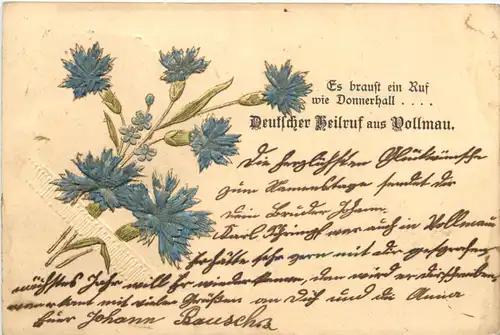 Es braust ein Ruf
wie Donnerhall . . . .
Deutscher Heilruf aus Vollmau.
Die herzlichsten Glückwünsche
zum Namenstage sendet dir
dein Bruder Johann.
Karl war auch in Vollmau
hätte sehr gern mit dir gesprochen
nächstes Jahr will Er wiederkommen, dann wird er dir schreiben
mit vielen Grüßen an Dich und die Anna
Euer Johann Rauscher